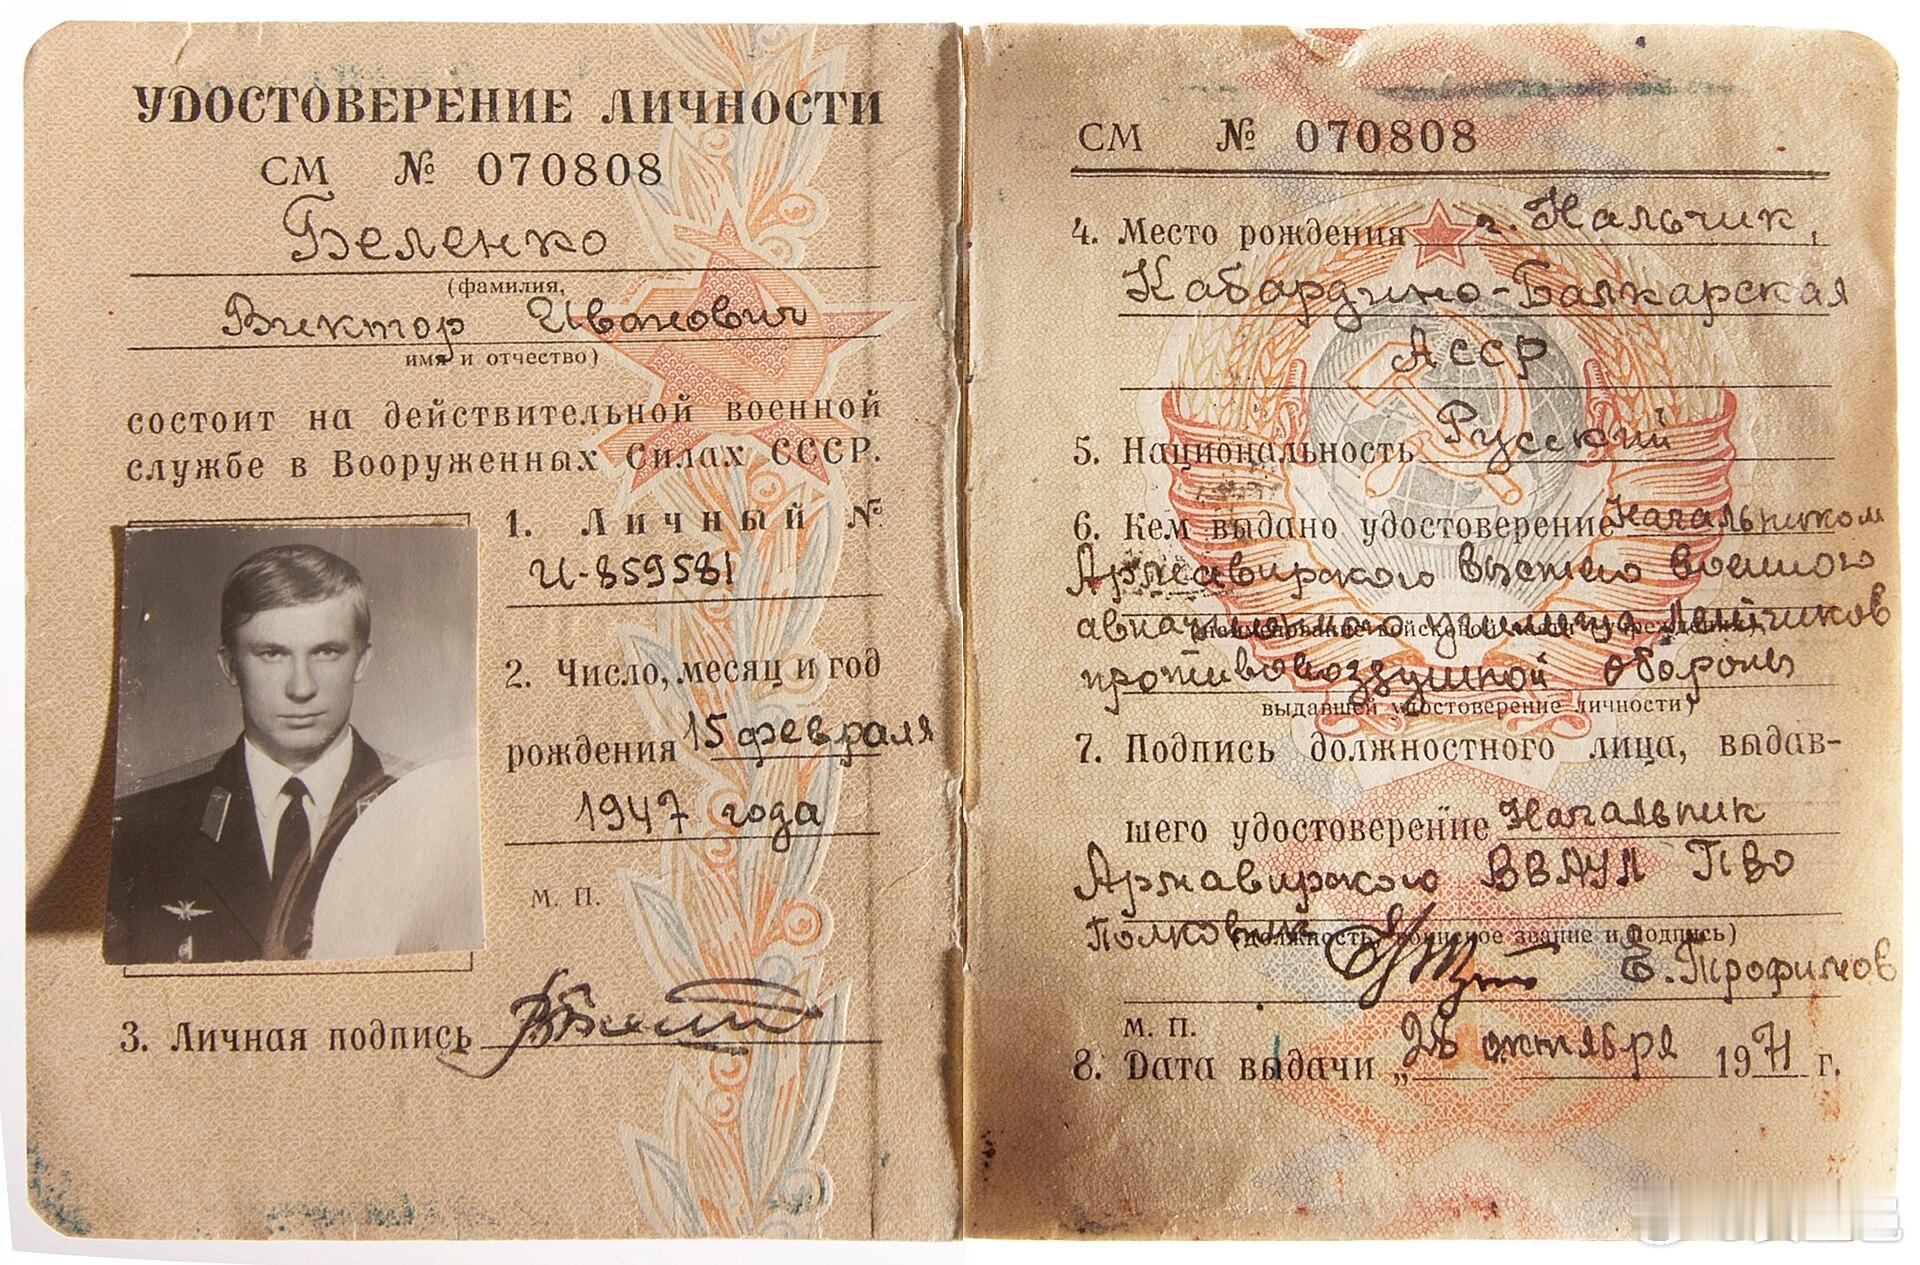 УДОСТОВЕРЕНИЕ ЛИЧНОСТИ
СМ № 070808
Беленко
(фамилия,
Виктор Иванович
имя и отчество)
состоит на действительной военной
службе в Вооруженных Силах СССР.
1. Личный №
И-859581
2. Число, месяц и год
рождения 15 февраля
1947 года
М. П.
3. Личная подпись
СМ № 070808
4. Место рождения г. Нальчик,
Кабардино-Балкарская
АССР
5. Национальность Русский
6. Кем выдано удостоверение Начальником
Армавирского высшего военного
авиационного училища летчиков
(наименование войсковой части, учреждения,
противовоздушной обороны
выдавшей удостоверение личности)
7. Подпись должностного лица, выдав-
шего удостоверение Начальник
Армавирского ВВАУЛ ПВО
Полковник
(должность, воинское звание и подпись)
Е. Трофимов
М. П.
8. Дата выдачи „28 октября 1971 г.